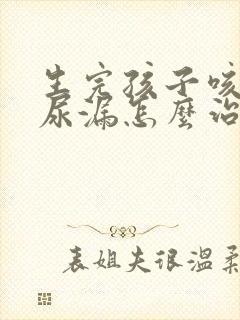 生完孩子咳
尿漏怎麼治
表姐夫很溫柔